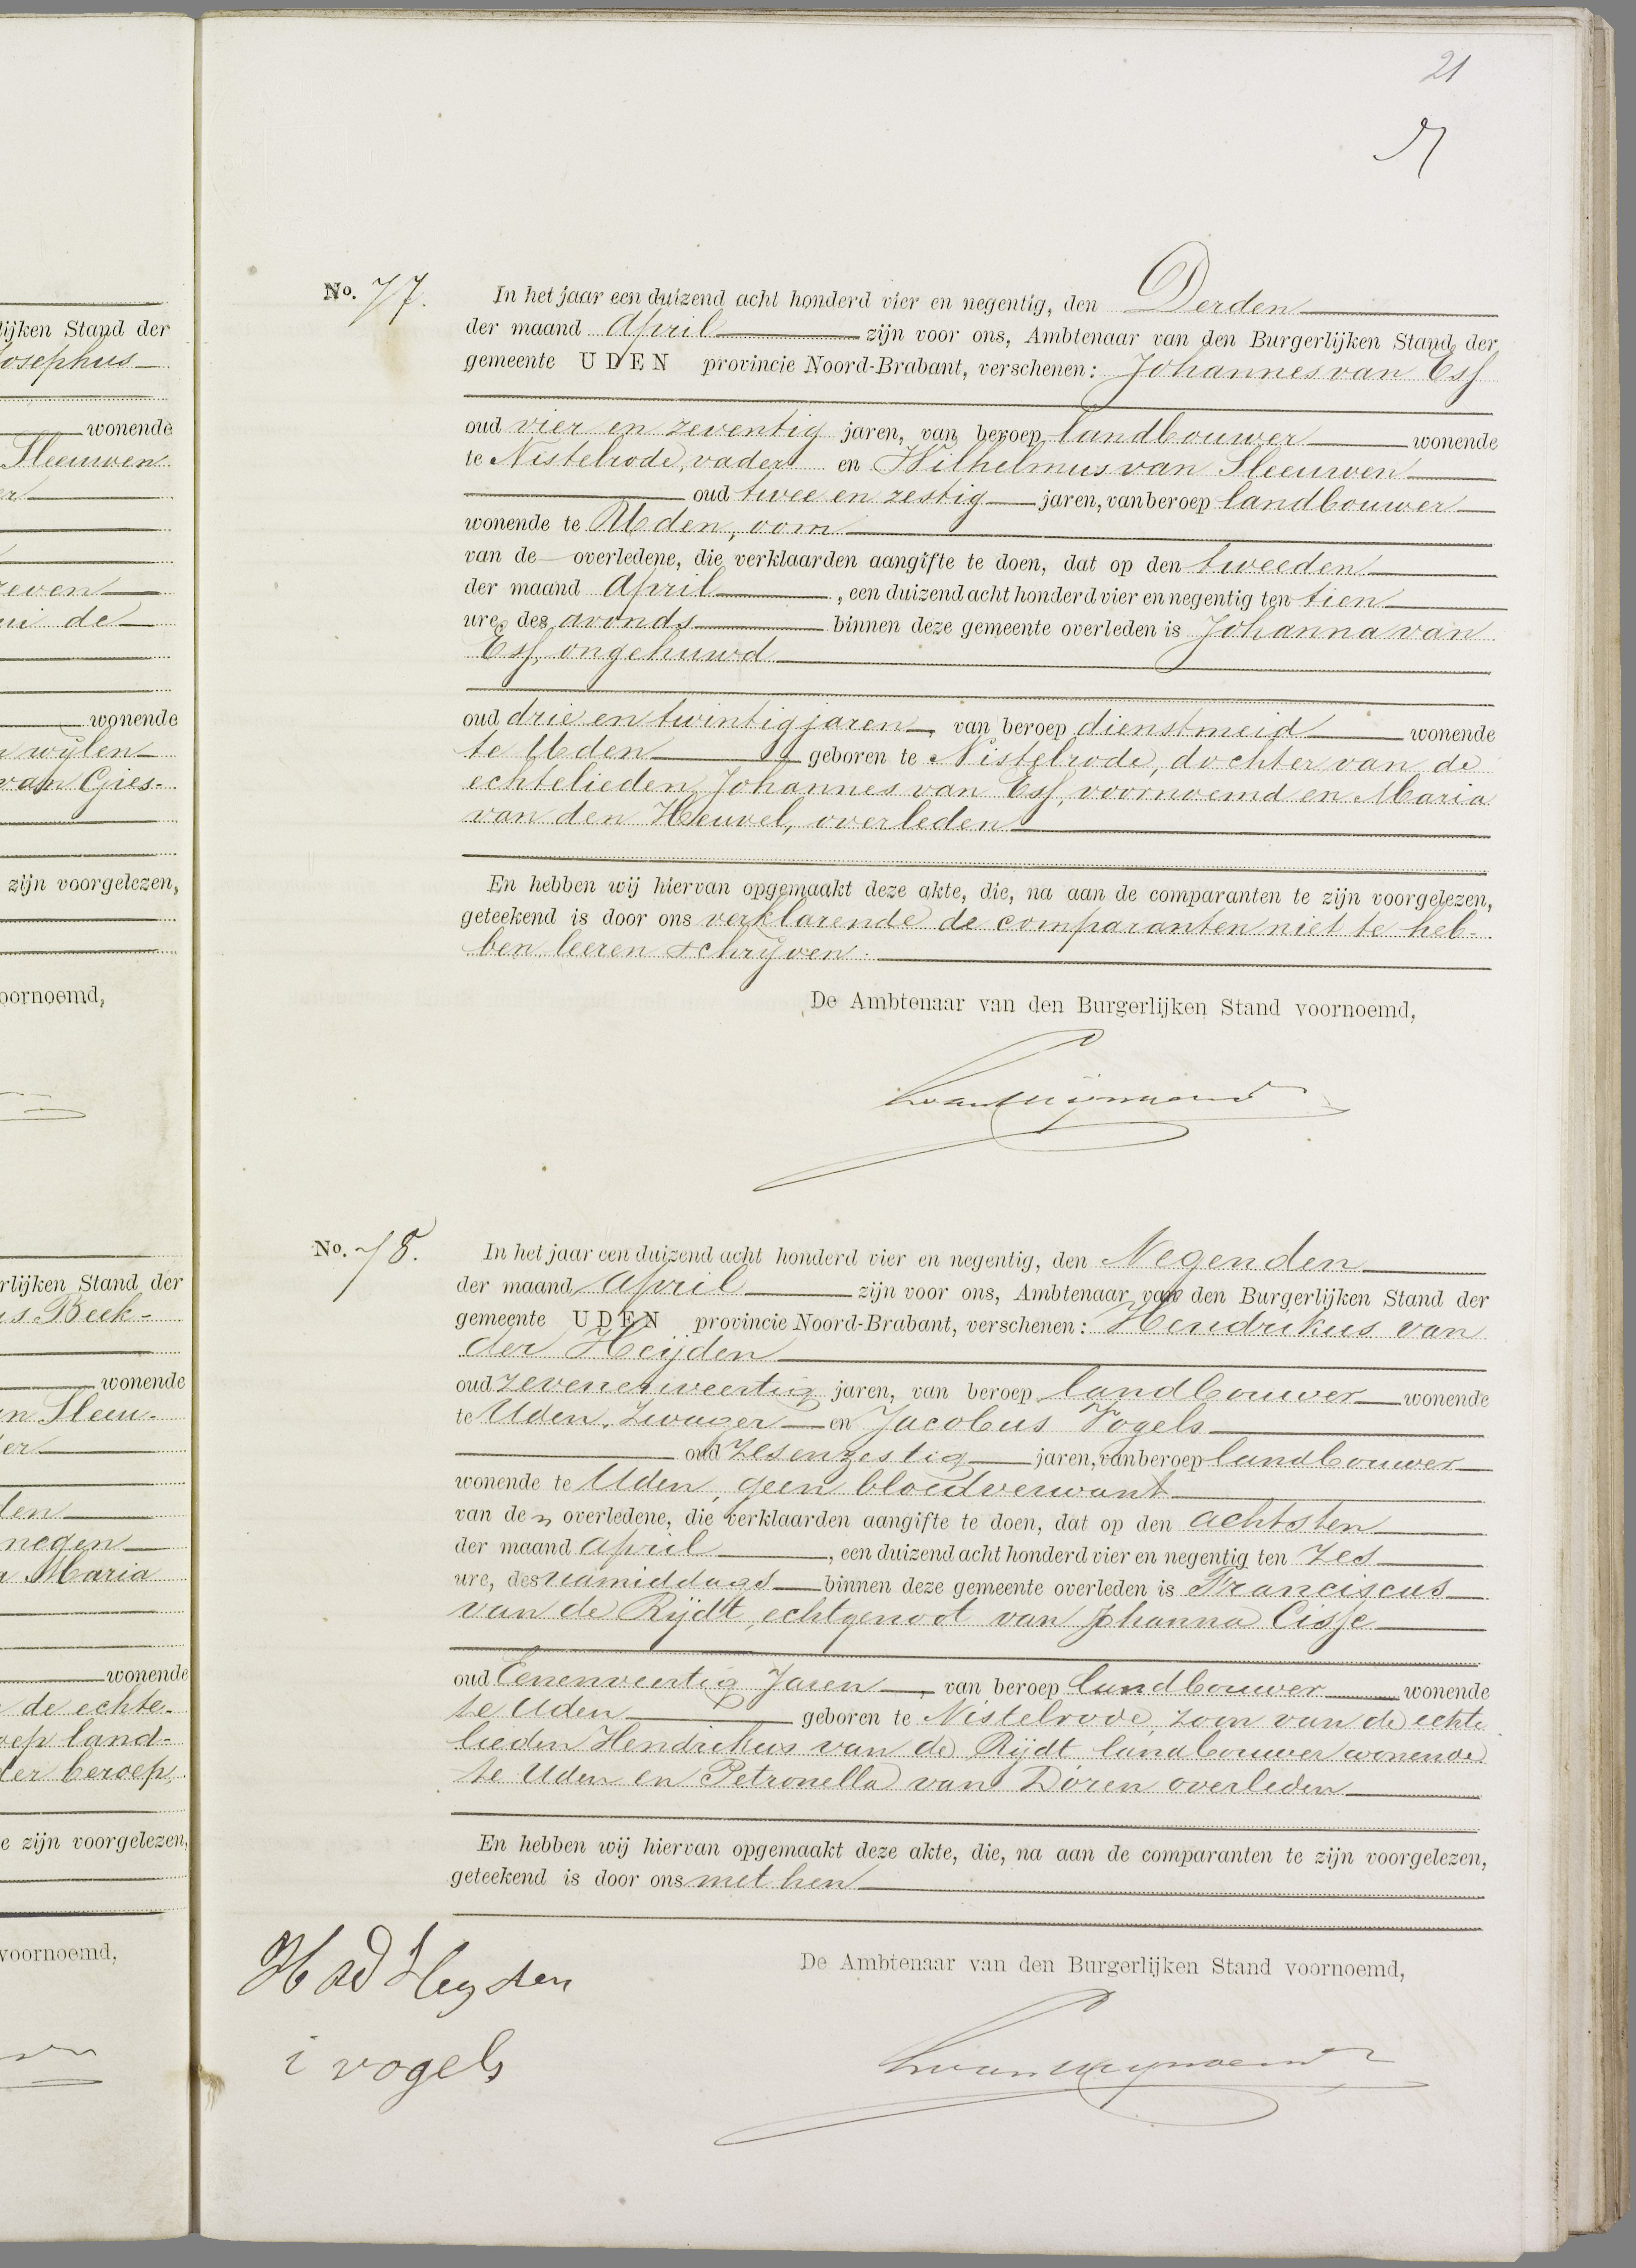 21
No. 77.
In het jaar een duizend acht honderd vier en negentig, den Derden
der maand April zijn voor ons, Ambtenaar van den Burgerlijken Stand der
gemeente UDEN provincie Noord-Brabant, verschenen: Johannes van Ess
oud vier en zeventig jaren, van beroep landbouwer wonende
te Nistelrode, vader en Wilhelmus van Sleeuwen
oud twee en zestig jaren, van beroep landbouwer
wonende te Uden, oom
van de overledene, die verklaarden aangifte te doen, dat op den tweeden
der maand April, een duizend acht honderd vier en negentig ten tien
ure, des avonds binnen deze gemeente overleden is Johanna van
Ess, ongehuwd
oud drie en twintig jaren, van beroep dienstmeid wonende
te Uden geboren te Nistelrode, dochter van de
echtelieden Johannes van Ess, voornoemd en Maria
van den Heuvel, overleden
En hebben wij hiervan opgemaakt deze akte, die, na aan de comparanten te zijn voorgelezen,
geteekend is door ons verklarende de comparanten niet te heb-
ben leeren schrijven.
De Ambtenaar van den Burgerlijken Stand voornoemd,
No. 78.
In het jaar een duizend acht honderd vier en negentig, den Negenden
der maand April zijn voor ons, Ambtenaar van den Burgerlijken Stand der
gemeente UDEN provincie Noord-Brabant, verschenen: Hendrikus van
der Heijden
oud zevenenveertig jaren, van beroep landbouwer wonende
te Uden, Zwager en Jacobus Vogels
oud zesenzestig jaren, van beroep landbouwer
wonende te Uden, geen bloedverwant
van den overledene, die verklaarden aangifte te doen, dat op den achtsten
der maand April, een duizend acht honderd vier en negentig ten zes
ure, des namiddags binnen deze gemeente overleden is Franciscus
van de Rijdt, echtgenoot van Johanna Cisse
oud Eenenveertig Jaren, van beroep landbouwer wonende
te Uden geboren te Nistelrode, zoon van de echte
lieden Hendrikus van de Rijdt landbouwer wonende
te Uden en Petronella van Doren overleden
En hebben wij hiervan opgemaakt deze akte, die, na aan de comparanten te zijn voorgelezen,
geteekend is door ons met hen
De Ambtenaar van den Burgerlijken Stand voornoemd,
H vd Heyden
i vogels
lijken Stand der
osephus
wonende
Sleeuwen
even
de
wonende
wijlen
van Gies-
zijn voorgelezen,
oornoemd,
rlijken Stand der
s Beek-
wonende
n Sleeu-
er
den
negen
Maria
wonende
de echte-
oep land-
der beroep,
e zijn voorgelezen,
voornoemd,